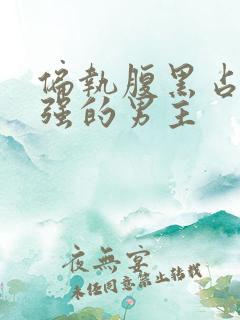 偏执腹黑占
强的男主
夜無宴
未经同意禁止转载